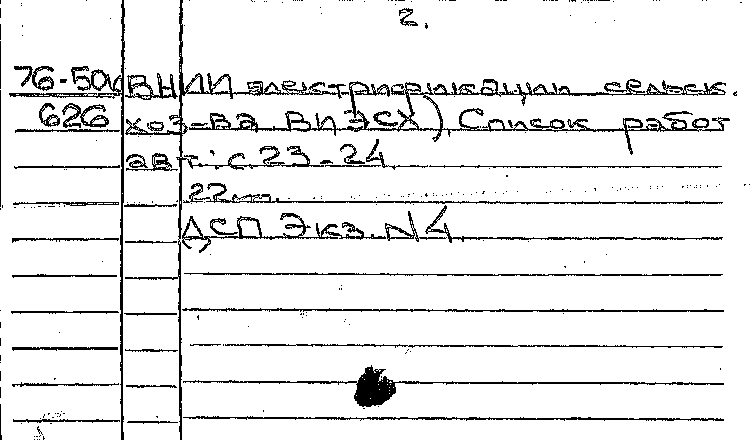 2.
76-50 ВНИИ электрификации сельск.
626 хоз-ва ВИЭСХ). Список работ
авт.: с. 23-24.
22 см.
ДСП Экз. N4.